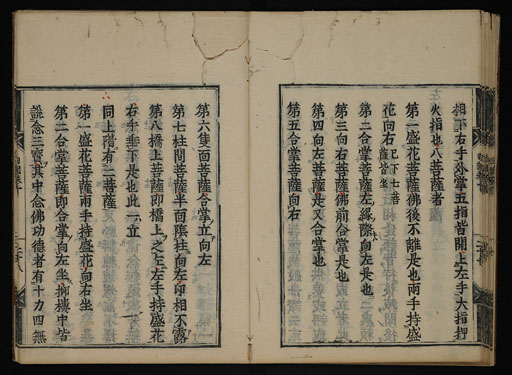 相
右手外掌五指皆開上左手大指押
火指也八菩薩者
第一盛花菩薩佛後不離是也兩手持盛
花向右
已下七菩
薩皆坐
第二合掌菩薩左緣際向左是也
第三向右菩薩佛前合掌是也
第四向左菩薩是又合掌也
第五合掌菩薩向右
第六隻面菩薩合掌立向左
第七柱間菩薩半面隱柱向左印相不露
第八橋上菩薩即橋上之左左手持盛花
右手垂下是也此一立
同上階有二菩薩
第一盛花菩薩兩手持盛花向右坐
第二合掌菩薩即合掌向左坐樓中皆
說念三寶其中念佛功德者有十力四無